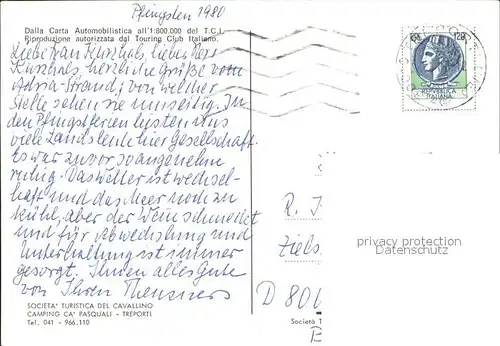 Pfingsten 1980
Dalla Carta Automobilistica all'1:800.000 del T.C.I.
Riproduzione autorizzata dal Touring Club Italiano.
Liebe Frau Kuschels, lieber Herr
Kuschels, herzliche Grüße vom
Adria-Strand; von welcher
Stelle sehen sie umseitig. In
den Pfingstferien leisten uns
viele Landsleute hier Gesellschaft.
Es war zuvor so angenehm
ruhig. Das Wetter ist wechsel-
haft und das Meer noch zu
kühl, aber der Wein schmeckt
und für Abwechslung und
Unterhaltung ist immer
gesorgt. Ihnen alles Gute
von Ihren
SOCIETA' TURISTICA DEL CAVALLINO
CAMPING CA' PASQUALI - TREPORTI
Tel. 041 - 966.110
120
REPVBBLICA
ITALIANA
R.
privacy protection
Datenschutz
Ziels
D 806
Società T